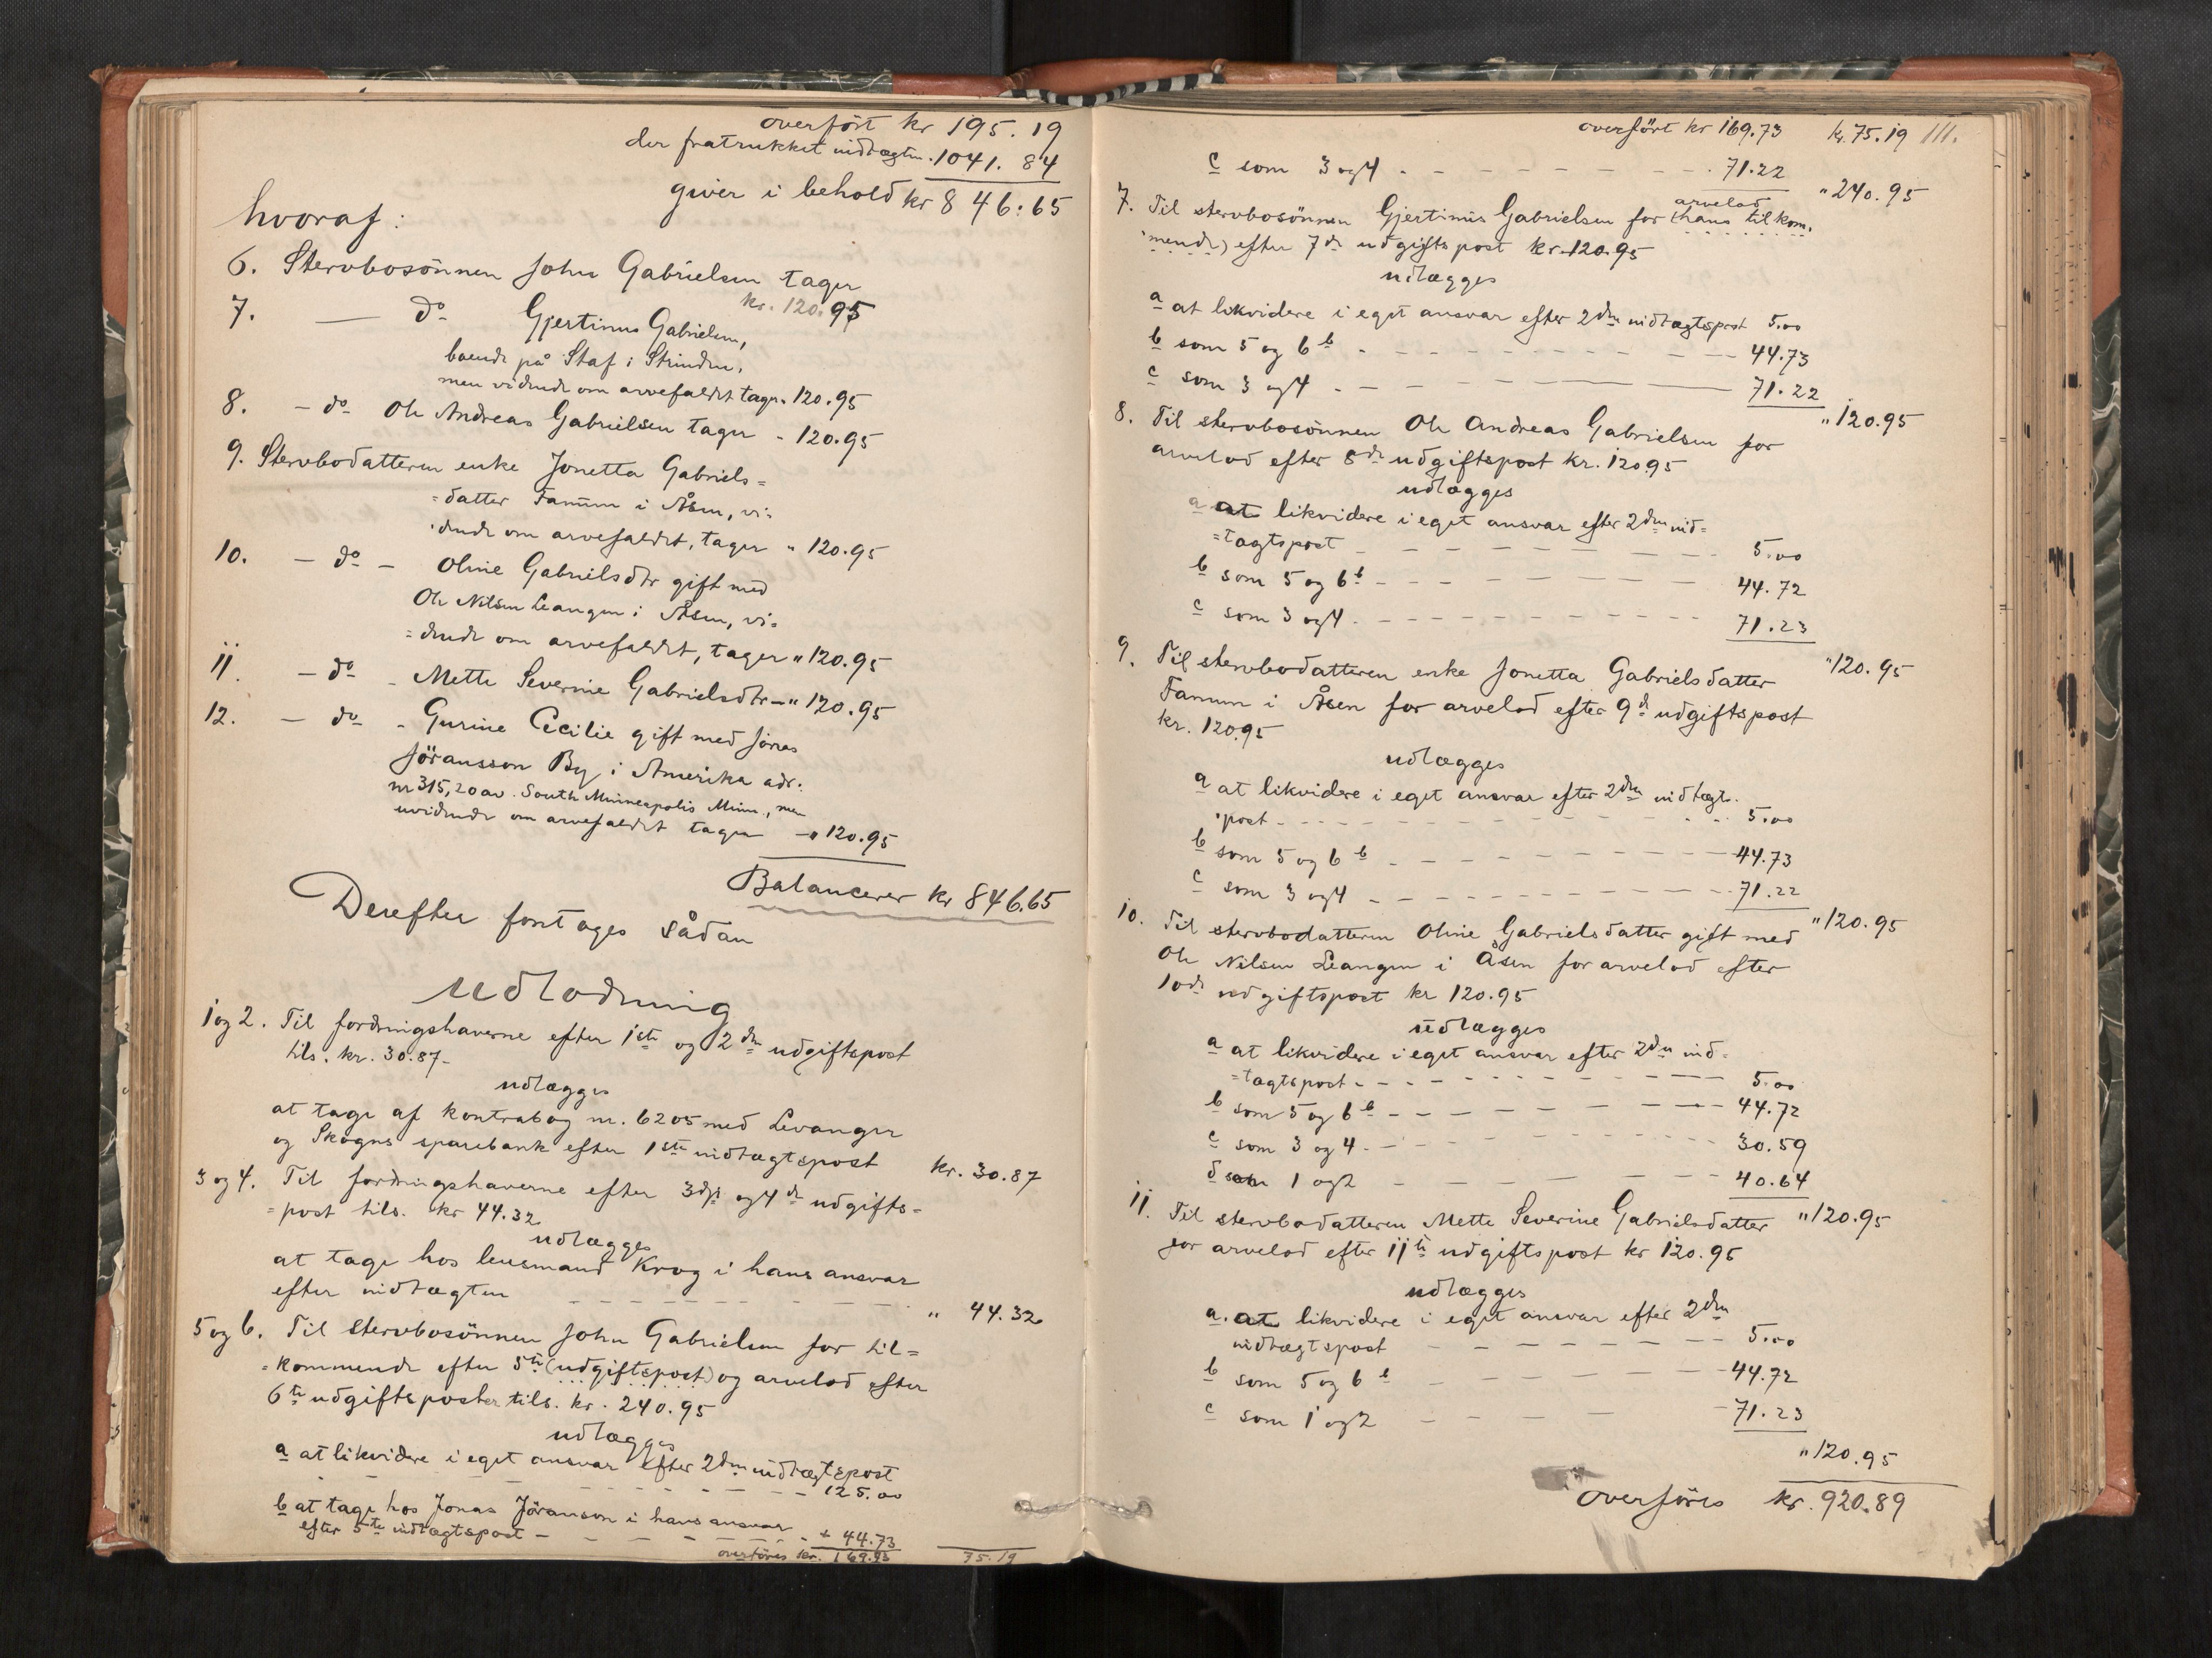 overført kr 195.19
der fratrukket indtægten . 1041.84
giver i behold kr 846.65
hvoraf:
6. Stervbosönnen John Gabrielsen tager
kr. 120.95
7. — do Gjertinus Gabrielsen,
boende på Staf i Strinden,
men vidende om arvefaldet tager " 120.95
8. - do Ole Andreas Gabrielsen tager - 120.95
9. Stervbodatteren enke Jonetta Gabriels=
=datter Fanum i Åsen, vi=
=dende om arvefaldet, tager " 120.95
10. - do - Oline Gabrielsdtr gift med
Ole Nilsen Leangen i Åsen, vi=
=dende om arvefaldet, tager " 120.95
11. - do - Mette Severine Gabrielsdtr - " 120.95
12. - do - Gurine Cecilie gift med Jonas
Jöransson By i Amerika adr.
nr 315, 20 av. South Minneapolis Minn., men
uvidende om arvefaldet tager - " 120.95
Balancerer kr 846.65
Derefter foretages sådan
Udlodning
1 og 2. Til fordringshaverne efter 1ste og 2den udgiftspost
tils. kr. 30.87 -
udlægges
at tage af kontrabog nr. 6205 med Levanger
og Skogns sparebank efter 1ste indtægtspost kr. 30.87
3 og 4. Til fordringshaverne efter 3dje og 4de udgifts=
=post tils. kr 44.32
udlægges
at tage hos lensmand Krog i hans ansvar
efter indtægten - - - - - - - - " 44.32
5 og 6. Til stervbosönnen John Gabrielsen for til=
=kommende efter 5te (udgiftspost) og arvelod efter
6te udgiftsposter tils. kr. 240.95
udlægges
a at likvidere i eget ansvar efter 2den indtægtspost
- - - - - - - - 125.00
b at tage hos Jonas Jöranson i hans ansvar
efter 5te indtægtspost - - - - - - + 44.73
overføres kr. 169.73 75.19
overført kr 169.73 kr. 75.19 111.
c som 3 og 4 - - - - - - - - 71.22
" 240.95
arvelod
7. Til stervbosönnen Gjertinus Gabrielsen for (hans tilkom.
mende) efter 7de udgiftspost kr. 120.95
udlægges
a at likvidere i eget ansvar efter 2den indtægtspost 5.00
b som 5 og 6 b - - - - - - - - 44.73
c som 3 og 4 - - - - - - 71.22
" 120.95
8. Til stervbosönnen Ole Andreas Gabrielsen for
arvelod efter 8de udgiftspost kr. 120.95
udlægges
a at likvidere i eget ansvar efter 2den ind=
=tægtspost - - - - - - - - 5.00
b som 5 og 6 b - - - - - - - - 44.72
c som 3 og 4 - - - - - - - - 71.23
" 120.95
9. Til stervbodatteren enke Jonetta Gabrielsdatter
Fanum i Åsen for arvelod efter 9de udgiftspost
kr. 120.95
udlægges
a at likvidere i eget ansvar efter 2den indtægts.
post - - - - - - - - 5.00
b som 5 og 6 b - - - - - - - 44.73
c som 3 og 4 - - - - - - - 71.22
" 120.95
10. Til stervbodatteren Oline Gabrielsdatter gift med
Ole Nilsen Leangen i Åsen for arvelod efter
10de udgiftspost kr 120.95
udlægges
a at likvidere i eget ansvar efter 2den ind=
=tægtspost - - - - - - - - 5.00
b som 5 og 6 b - - - - - - - 44.72
c som 3 og 4 - - - - - - - - 30.59
d som 1 og 2 - - - - - - 40.64
" 120.95
11. Til stervbodatteren Mette Severine Gabrielsdatter
for arvelod efter 11te udgiftspost kr 120.95
udlægges
a. at likvidere i eget ansvar efter 2den
indtægtspost - - - - - - 5.00
b som 5 og 6 b - - - - - - 44.72
c som 1 og 2 - - - - - 71.23
" 120.95
overføres kr. 920.89